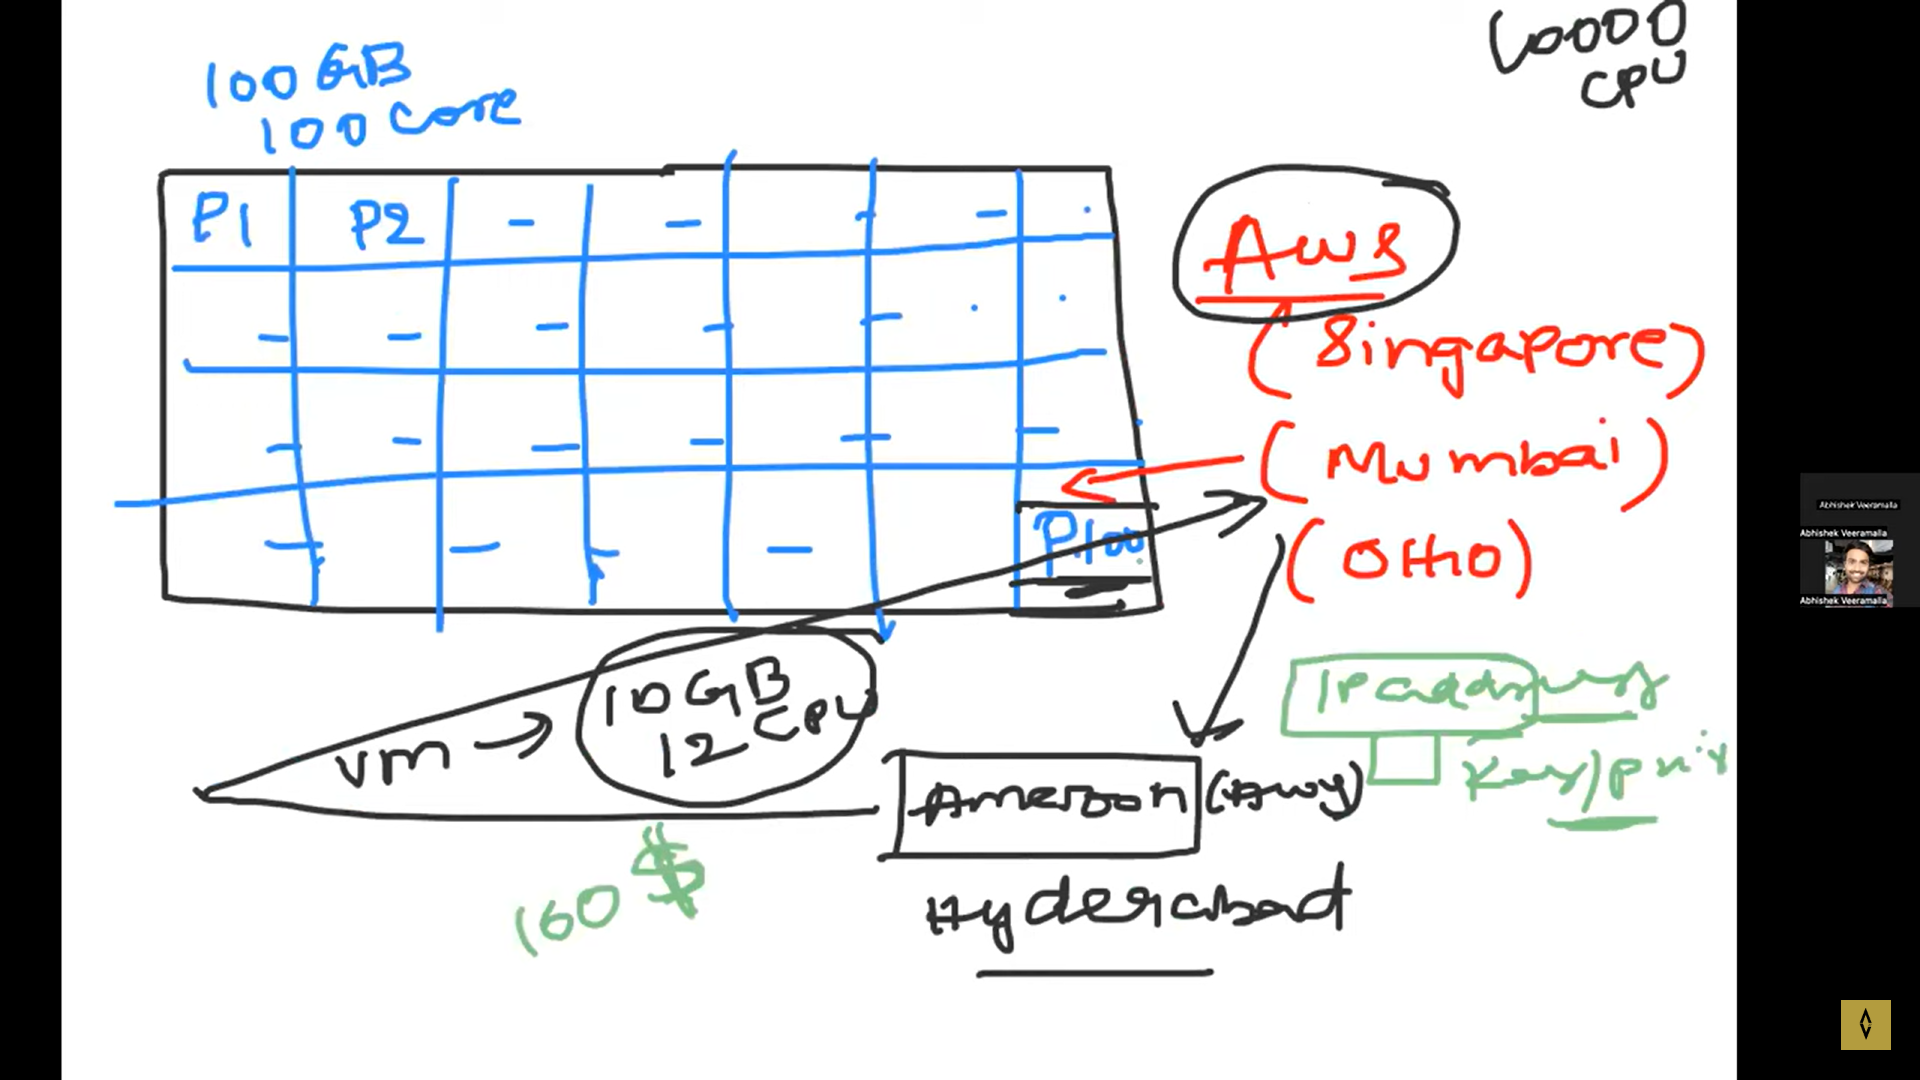 10000
CPU
100 GB
100 Core
P1 P2
AWS
(Singapore)
(Mumbai)
(OHIO)
P100
10 GB
12 CPU
VM
IP address
Key/pair
Amazon (Aws)
100 $
Hyderabad
Abhishek Veeramalla
Abhishek Veeramalla
Abhishek Veeramalla